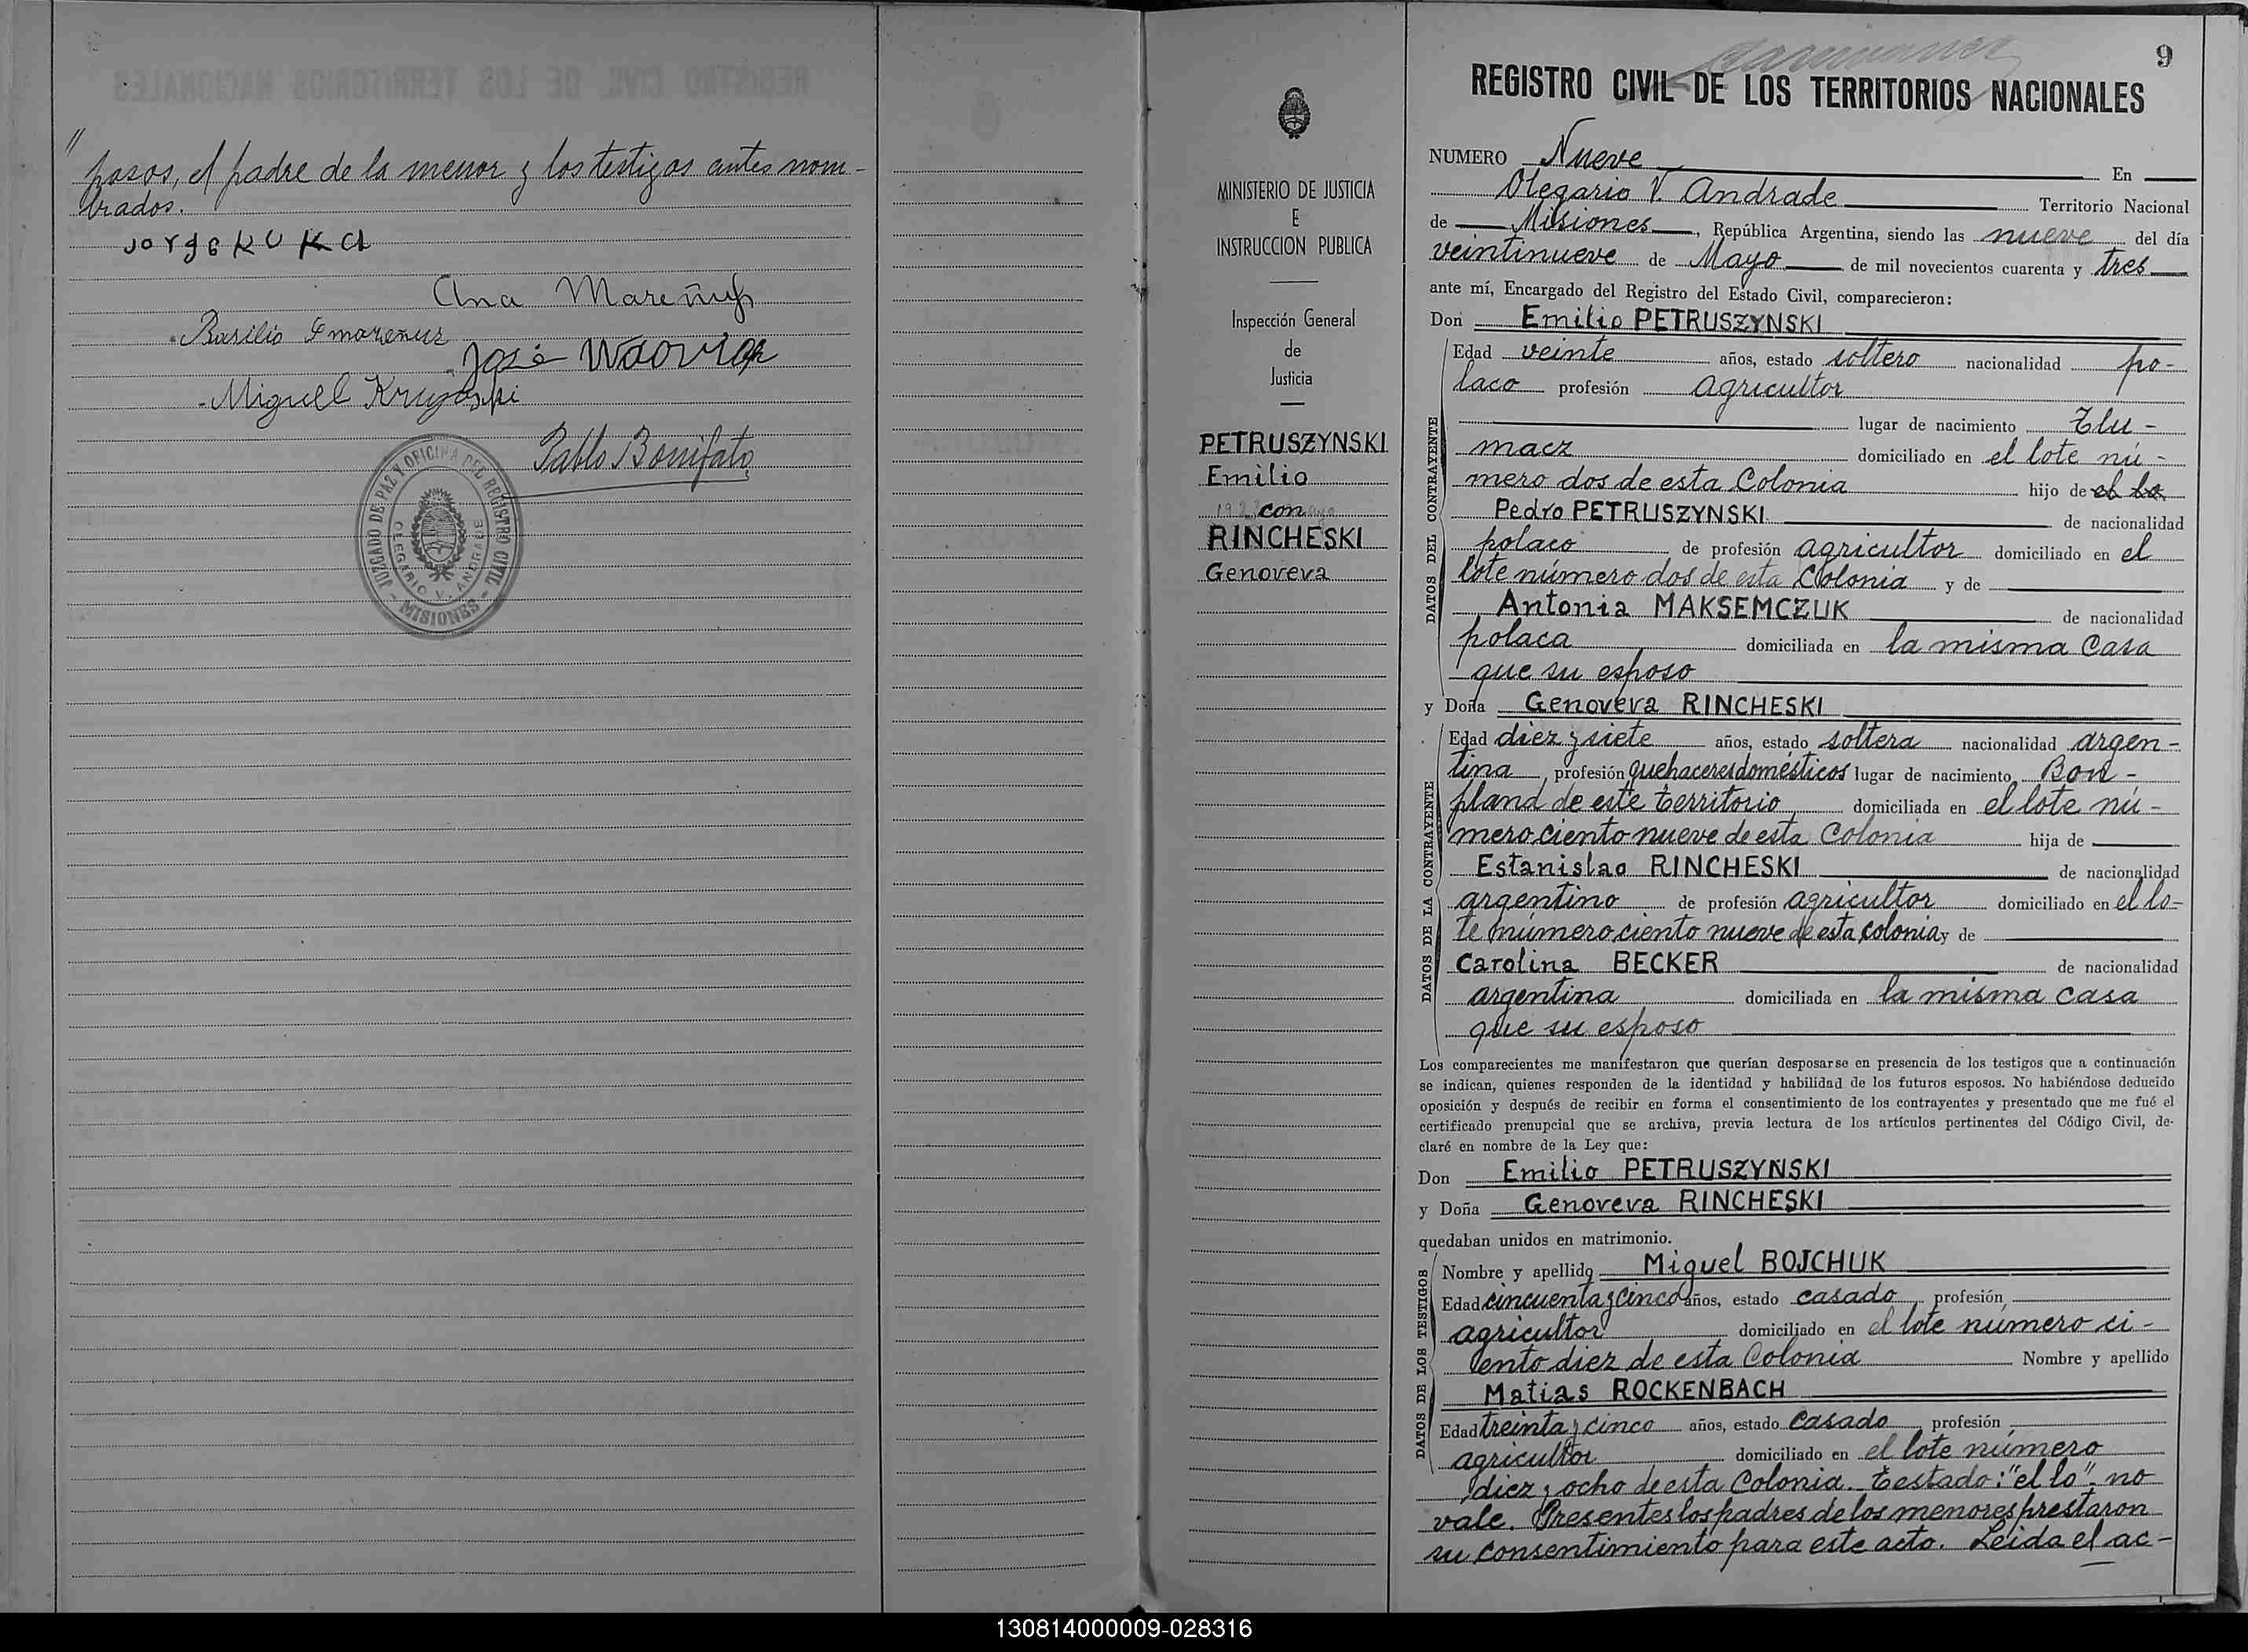 "
posos, el padre de la menor y los testigos antes nom-
brados.
Jorge KUKA
Ana
Basilio
José
Miguel
Pablo Bonifato
JUZGADO DE PAZ Y OFICINA DEL REGISTRO CIVIL
OLEGARIO V. ANDRADE
- MISIONES -
MINISTERIO DE JUSTICIA
E
INSTRUCCION PUBLICA
Inspección General
de
Justicia
PETRUSZYNSKI
Emilio
con
RINCHESKI
Genoveva
9
REGISTRO CIVIL DE LOS TERRITORIOS NACIONALES
NUMERO Nueve En
Olegario V. Andrade Territorio Nacional
de Misiones, República Argentina, siendo las nueve del día
veintinueve de Mayo de mil novecientos cuarenta y tres
ante mí, Encargado del Registro del Estado Civil, comparecieron:
Don Emilio PETRUSZYNSKI
DATOS DEL CONTRAYENTE
Edad veinte años, estado soltero nacionalidad po-
laco profesión agricultor
lugar de nacimiento Tlu-
macz domiciliado en el lote nú-
mero dos de esta Colonia hijo de el lo
Pedro PETRUSZYNSKI de nacionalidad
polaco de profesión agricultor domiciliado en el
lote número dos de esta Colonia y de
Antonia MAKSEMCZUK de nacionalidad
polaca domiciliada en la misma casa
que su esposo
y Doña Genoveva RINCHESKI
DATOS DE LA CONTRAYENTE
Edad diez y siete años, estado soltera nacionalidad argen-
tina, profesión quehaceres domésticos lugar de nacimiento Bon-
pland de este territorio domiciliada en el lote nú-
mero ciento nueve de esta Colonia hija de
Estanislao RINCHESKI de nacionalidad
argentino de profesión agricultor domiciliado en el lo-
te número ciento nueve de esta colonia y de
Carolina BECKER de nacionalidad
argentina domiciliada en la misma casa
que su esposo
Los comparecientes me manifestaron que querían desposarse en presencia de los testigos que a continuación
se indican, quienes responden de la identidad y habilidad de los futuros esposos. No habiéndose deducido
oposición y después de recibir en forma el consentimiento de los contrayentes y presentado que me fué el
certificado prenupcial que se archiva, previa lectura de los artículos pertinentes del Código Civil, de-
claré en nombre de la Ley que:
Don Emilio PETRUSZYNSKI
y Doña Genoveva RINCHESKI
quedaban unidos en matrimonio.
DATOS DE LOS TESTIGOS
Nombre y apellido Miguel BOJCHUK
Edad cincuenta y cinco años, estado casado profesión
agricultor domiciliado en el lote número ci-
ento diez de esta Colonia Nombre y apellido
Matias ROCKENBACH
Edad treinta y cinco años, estado casado, profesión
agricultor domiciliado en el lote número
diez y ocho de esta Colonia. Testado: "el lo" no
vale. Presentes los padres de los menores prestaron
su consentimiento para este acto. Leida el ac-
130814000009-028316